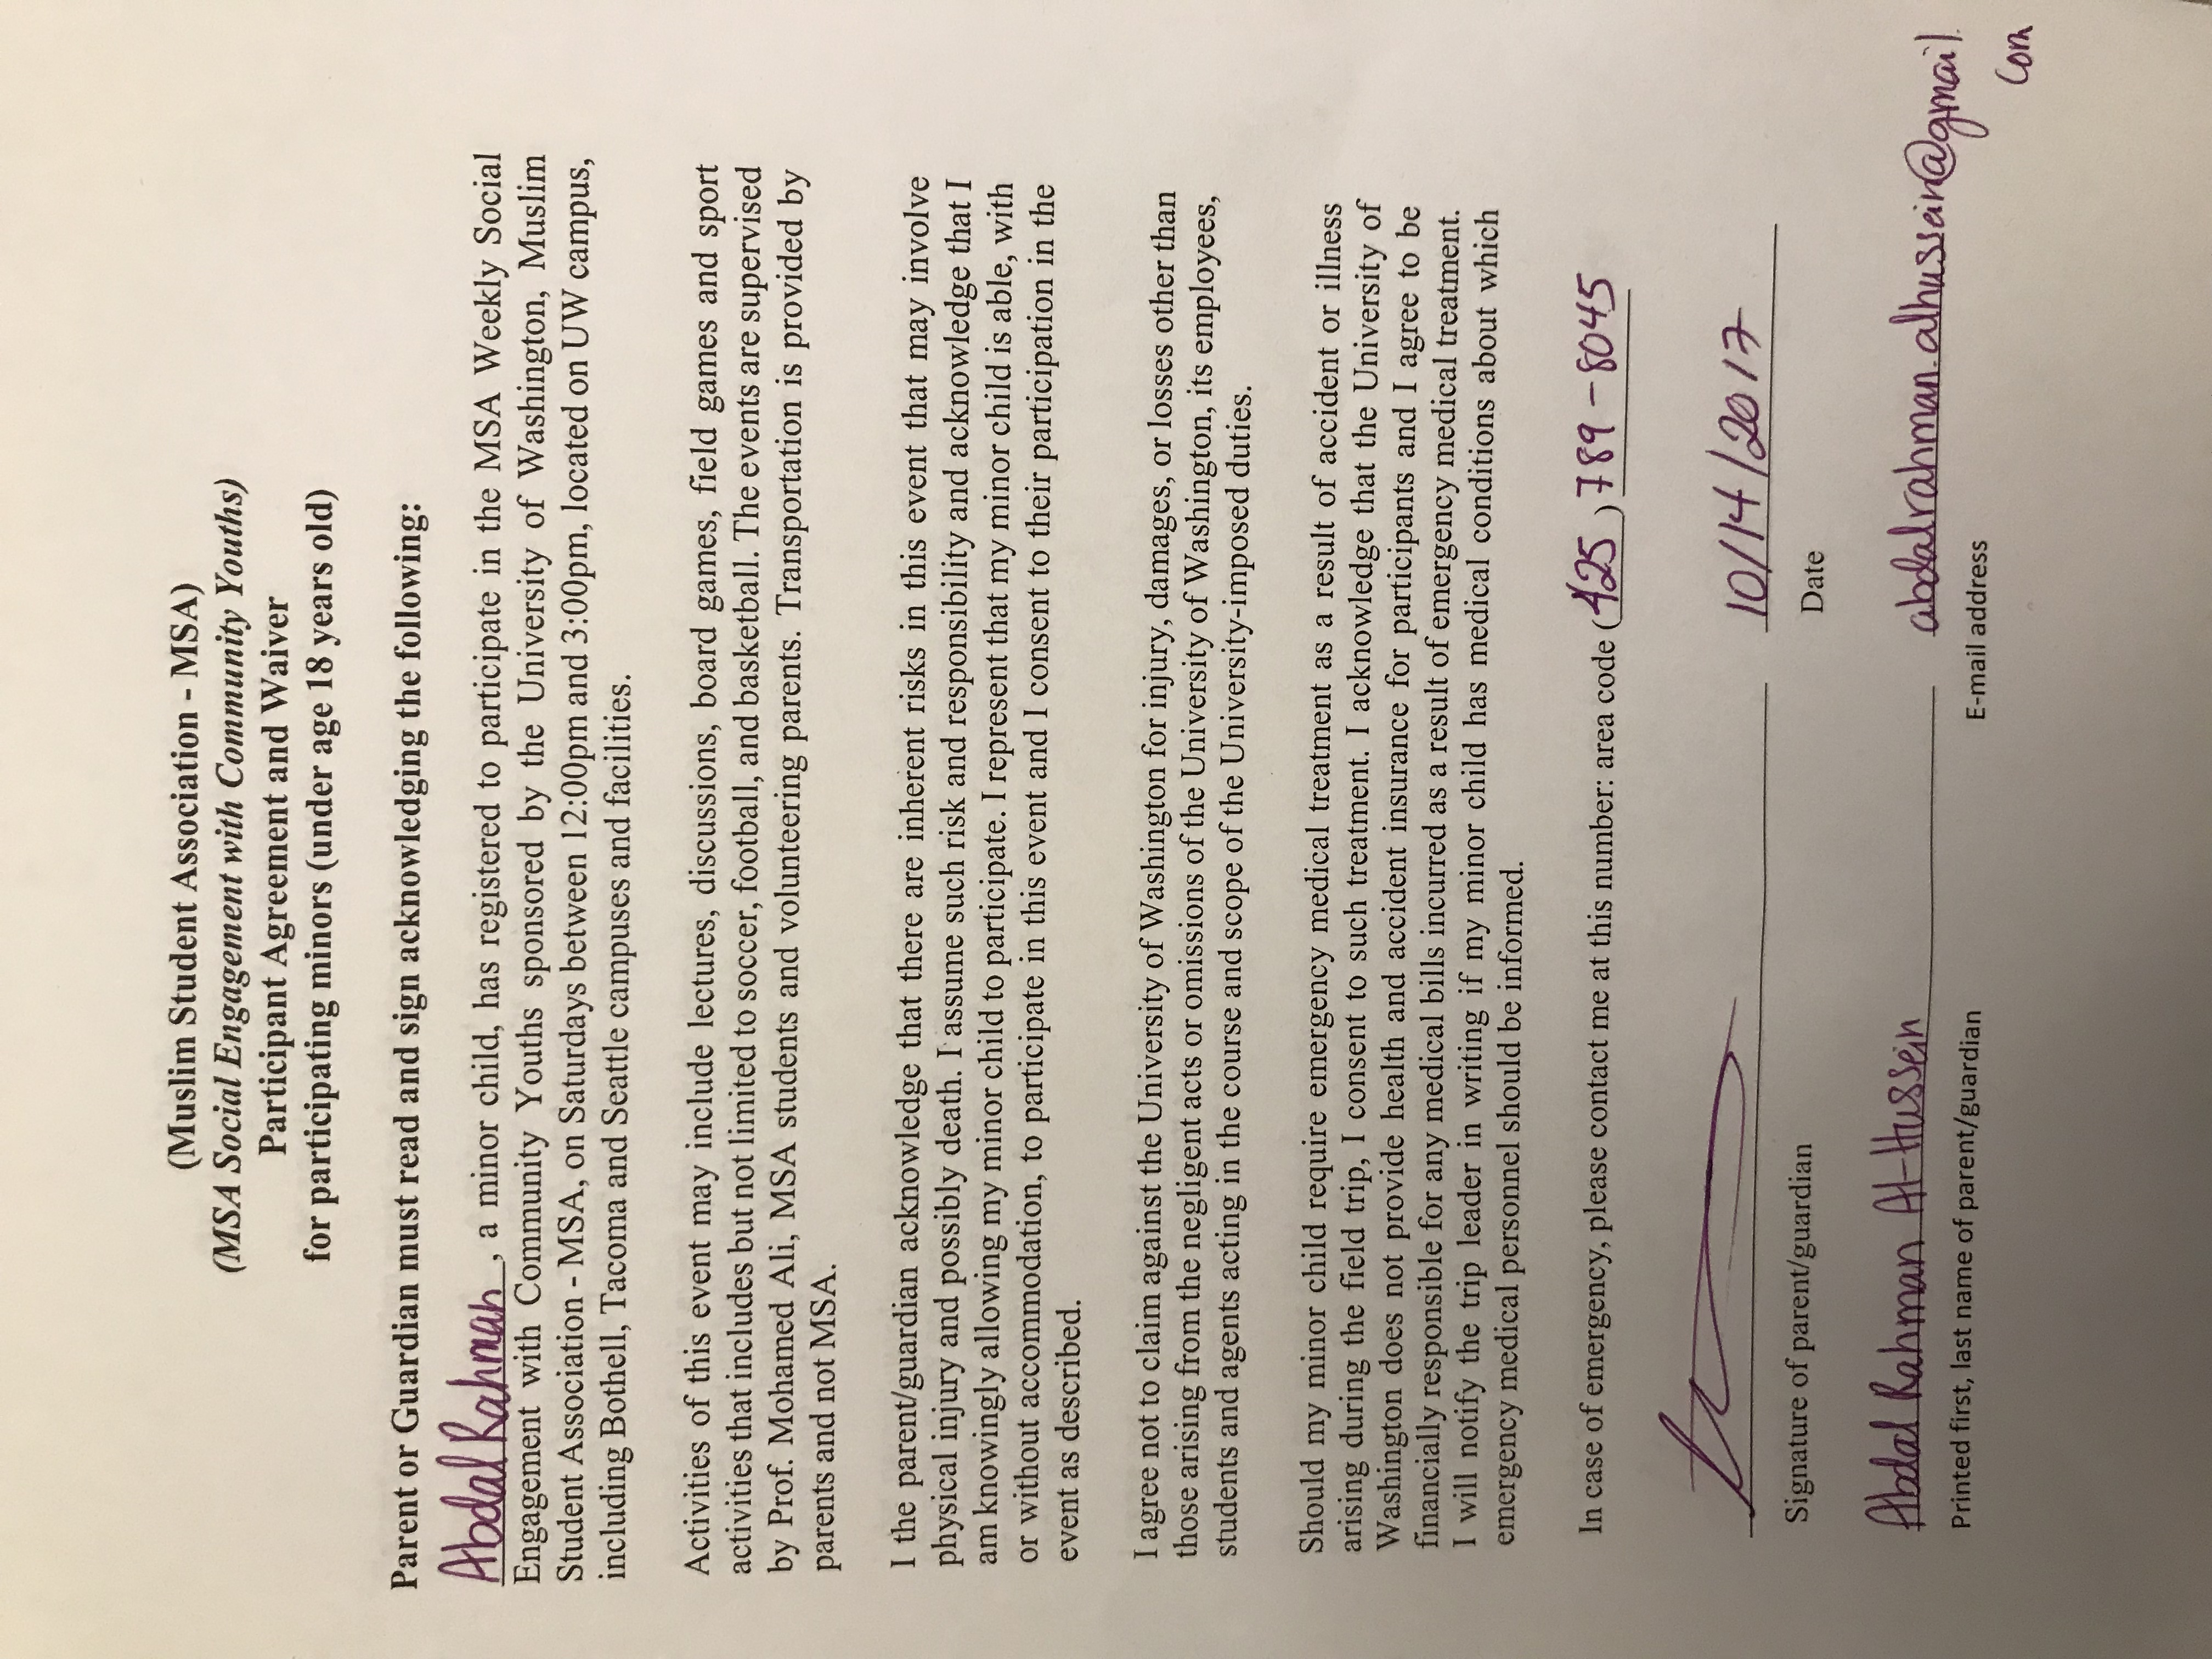 (Muslim Student Association - MSA)
(MSA Social Engagement with Community Youths)
Participant Agreement and Waiver
for participating minors (under age 18 years old)
Parent or Guardian must read and sign acknowledging the following:
Abdal Rahman, a minor child, has registered to participate in the MSA Weekly Social
Engagement with Community Youths sponsored by the University of Washington, Muslim
Student Association - MSA, on Saturdays between 12:00pm and 3:00pm, located on UW campus,
including Bothell, Tacoma and Seattle campuses and facilities.
Activities of this event may include lectures, discussions, board games, field games and sport
activities that includes but not limited to soccer, football, and basketball. The events are supervised
by Prof. Mohamed Ali, MSA students and volunteering parents. Transportation is provided by
parents and not MSA.
I the parent/guardian acknowledge that there are inherent risks in this event that may involve
physical injury and possibly death. I assume such risk and responsibility and acknowledge that I
am knowingly allowing my minor child to participate. I represent that my minor child is able, with
or without accommodation, to participate in this event and I consent to their participation in the
event as described.
I agree not to claim against the University of Washington for injury, damages, or losses other than
those arising from the negligent acts or omissions of the University of Washington, its employees,
students and agents acting in the course and scope of the University-imposed duties.
Should my minor child require emergency medical treatment as a result of accident or illness
arising during the field trip, I consent to such treatment. I acknowledge that the University of
Washington does not provide health and accident insurance for participants and I agree to be
financially responsible for any medical bills incurred as a result of emergency medical treatment.
I will notify the trip leader in writing if my minor child has medical conditions about which
emergency medical personnel should be informed.
In case of emergency, please contact me at this number: area code (425) 789-8045
10/14/2017
Signature of parent/guardian Date
Abdal Rahman Al-Hussein abdalrahman.alhussein@gmail.
com
Printed first, last name of parent/guardian E-mail address